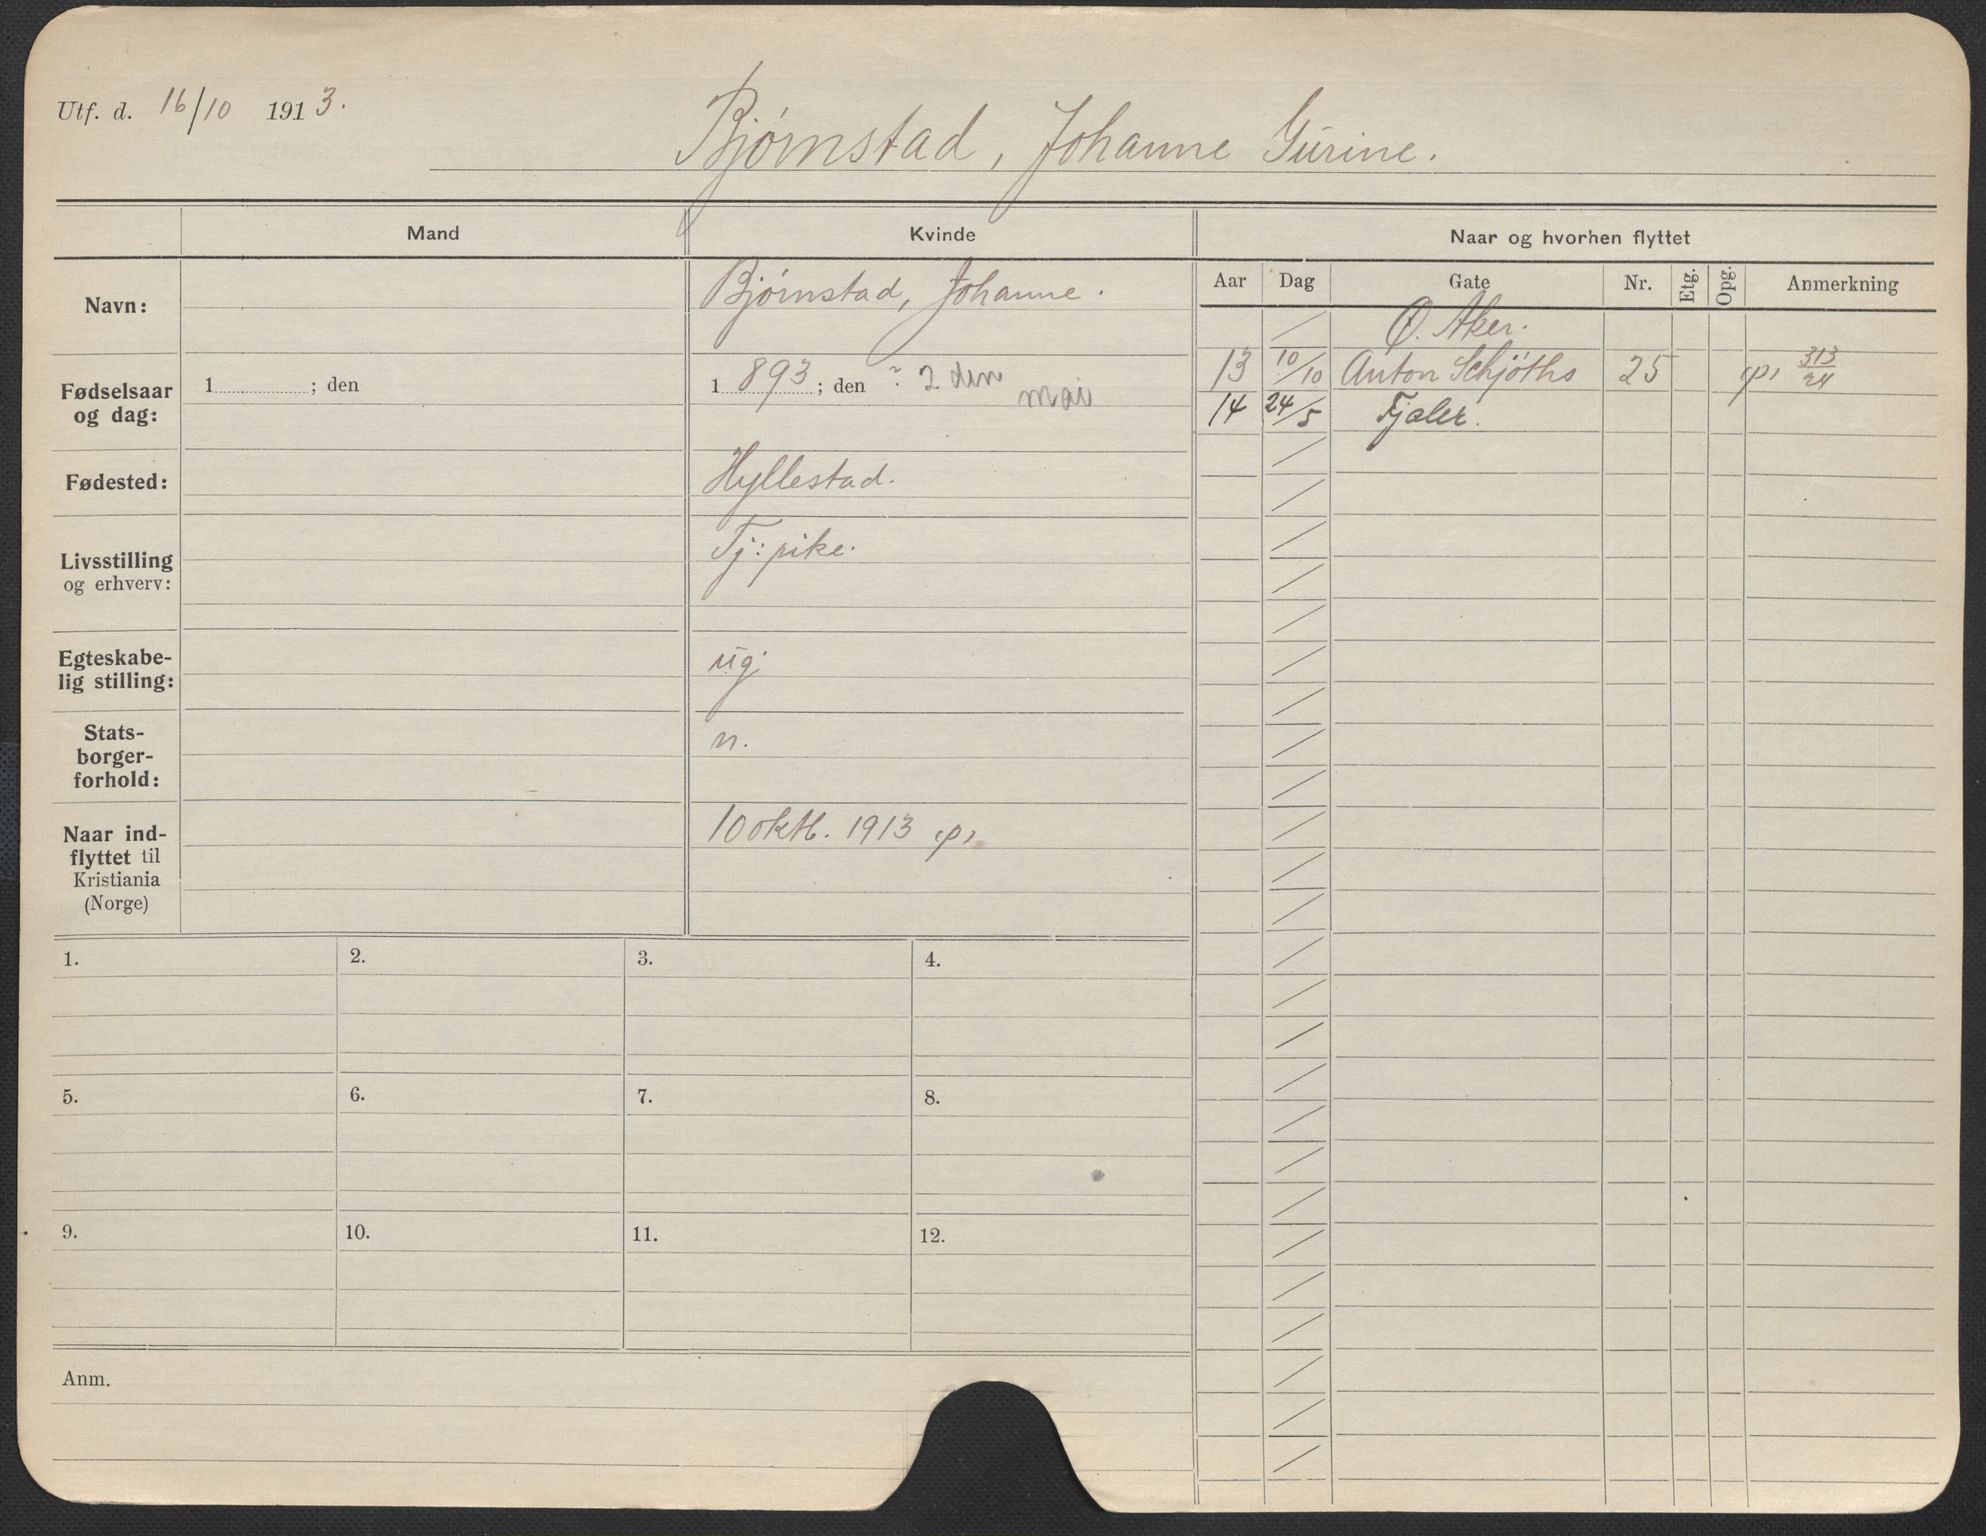 Utf. d. 16/10 1913.
Bjørnstad, Johanne Gurine.
Mand
Kvinde
Naar og hvorhen flyttet
Navn:
Bjørnstad, Johanne.
Aar Dag Gate Nr. Etg. Opg. Anmerkning
Ø. Aker.
13 10/10 Anton Schjøths 25 313/24
14 24/5 Fjaler.
Fødselsaar
og dag:
1 ; den
1893; den 2 den
mai
Fødested:
Hyllestad.
Livsstilling
og erhverv:
Tj: pike.
Egteskabe-
lig stilling:
ug.
Stats-
borger-
forhold:
n.
Naar ind-
flyttet til
Kristiania
(Norge)
10 oktb. 1913
1. 2. 3. 4.
5. 6. 7. 8.
9. 10. 11. 12.
Anm.